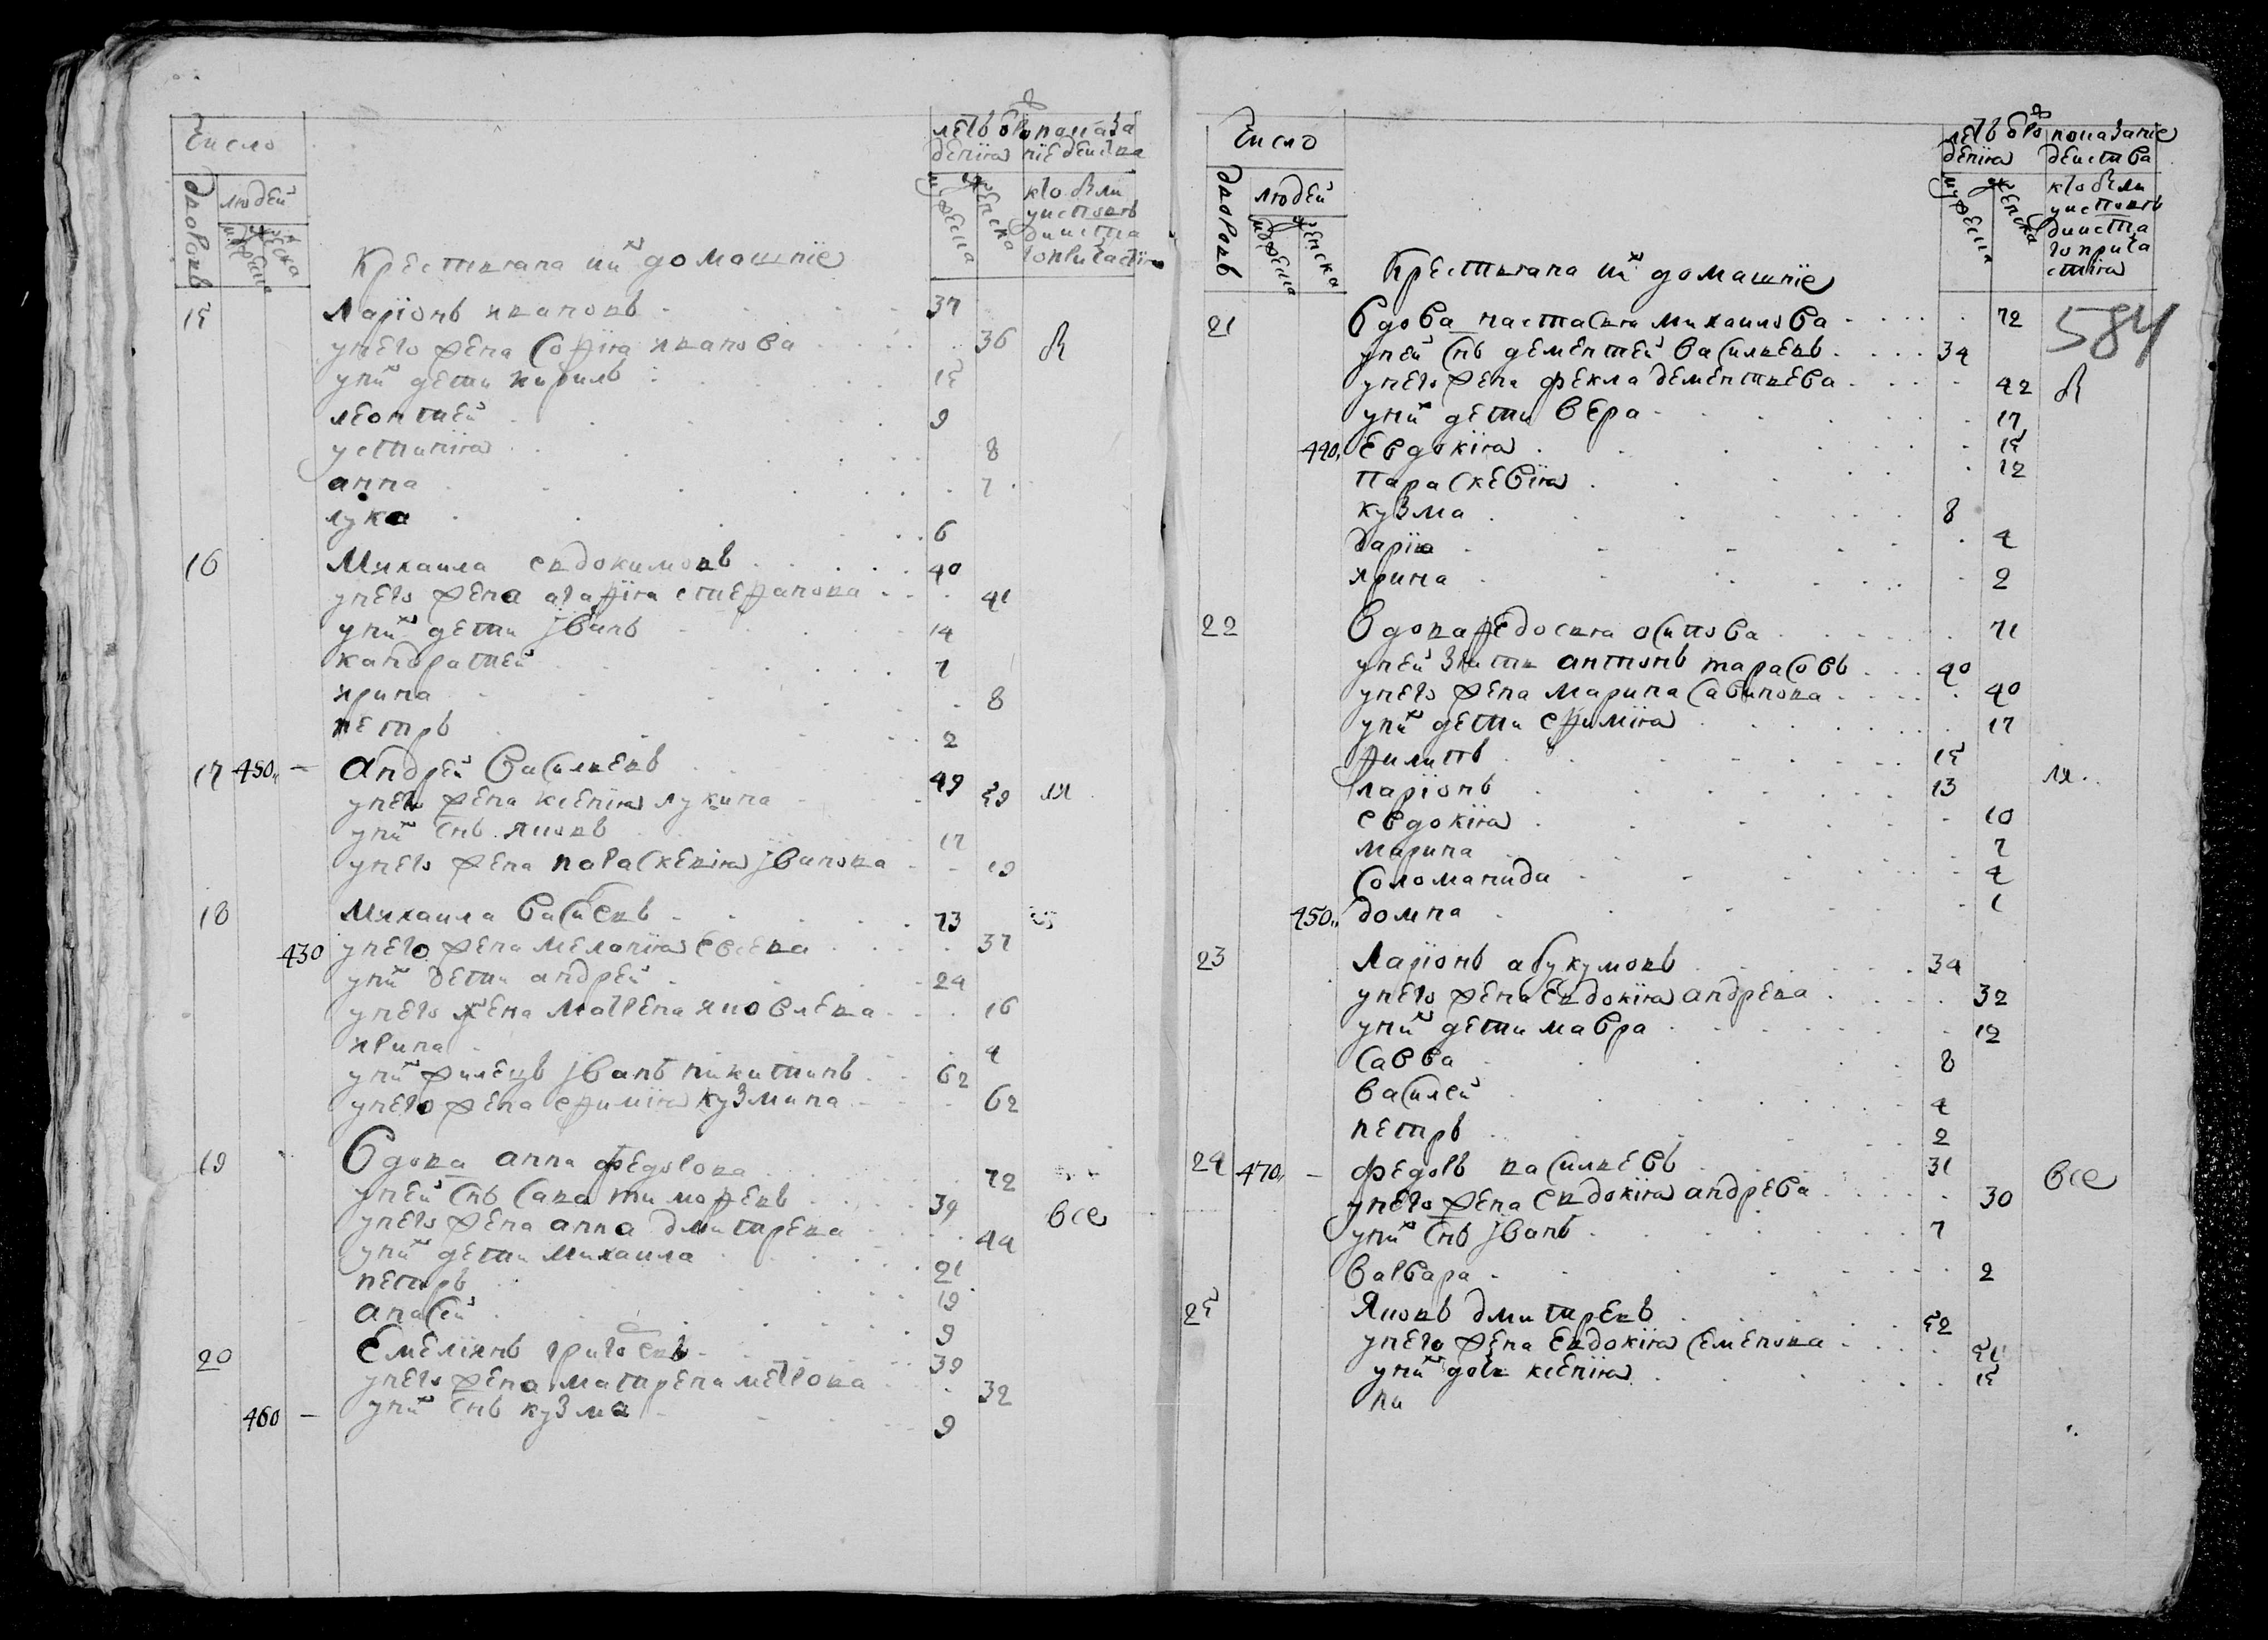 Число
дворовъ
людей
мужеска
женска
Крестьяна ихъ домашние
летъ от рож
дения
мужеска
женска
показа
ние действа
кто был ли
у исповеди
и святаго
причастия
15 Ларионъ Ивановъ 37
у него жена София Иванова 36 я
у них дети Кирилъ 15
Леонтей 9
Устиния 8
Анна 7
Лука 6
16 Михаила Евдокимовъ 40
у него жена Агафия Степанова 41
у них дети Иванъ 14
Кандратей 7
Ирина 8
Петръ 2
17 450 Андрей Васильевъ 49
у него жена Ксения Лукина 59
у них снъ Яковъ 17
у него жена Параскевия Иванова 19
18 Михаила Васи евъ 73
430 у него жена Мелания Евсева 37
у них дети Андрей 24
у него жена Матрена Яковлева 16
Ирина 4
у них жилецъ Иванъ Никитинъ 62
у него жена Ефимия Кузмина 62
19 Вдова Анна Федорова 72
у ней снъ Сава Тимофеевъ 39
у него жена Анна Дмитрева 44 все
у них дети Михаила 21
Петръ 19
Анасей 9
20 Емелиянъ Григоевъ 39
у него жена Матрена Петрова 32
460 у них снъ Кузма 9
Число
дворовъ
людей
мужеска
женска
Крестьяна ихъ домашние
летъ от рож
дения
мужеска
женска
показание
действа
кто был ли
у исповеди
и святаго
прича
стия
584
21 Вдова Настасья Михаилова 72
у ней снъ Дементей Васильевъ 34
у него жена Фекла Дементьева 42 я
у них дети Вера 17
440 Евдокия 15
Параскевия 12
Кузма 8
Дария 4
Ирина 2
22 Вдова Федосья Осипова 71
у ней зять Антонъ Тарасовъ 40
у него жена Марина Савинова 40
у них дети Ефимия 17
Филипъ 15
Ларионъ 13
Евдокия 10
Марина 7
Соломанида 4
450 Домна 1
23 Ларионъ Абукумовъ 34
у него жена Евдокия Андрева 32
у них дети Мавра 12
Савва 8
Василей 4
Петръ 2
24 470 Федоръ Васильевъ 31
у него жена Евдокия Андрева 30 все
у них снъ Иванъ 7
Варвара 2
25 Яковъ Дмитревъ 52
у него жена Евдокия Семенова 51
у них дочь Ксения 15